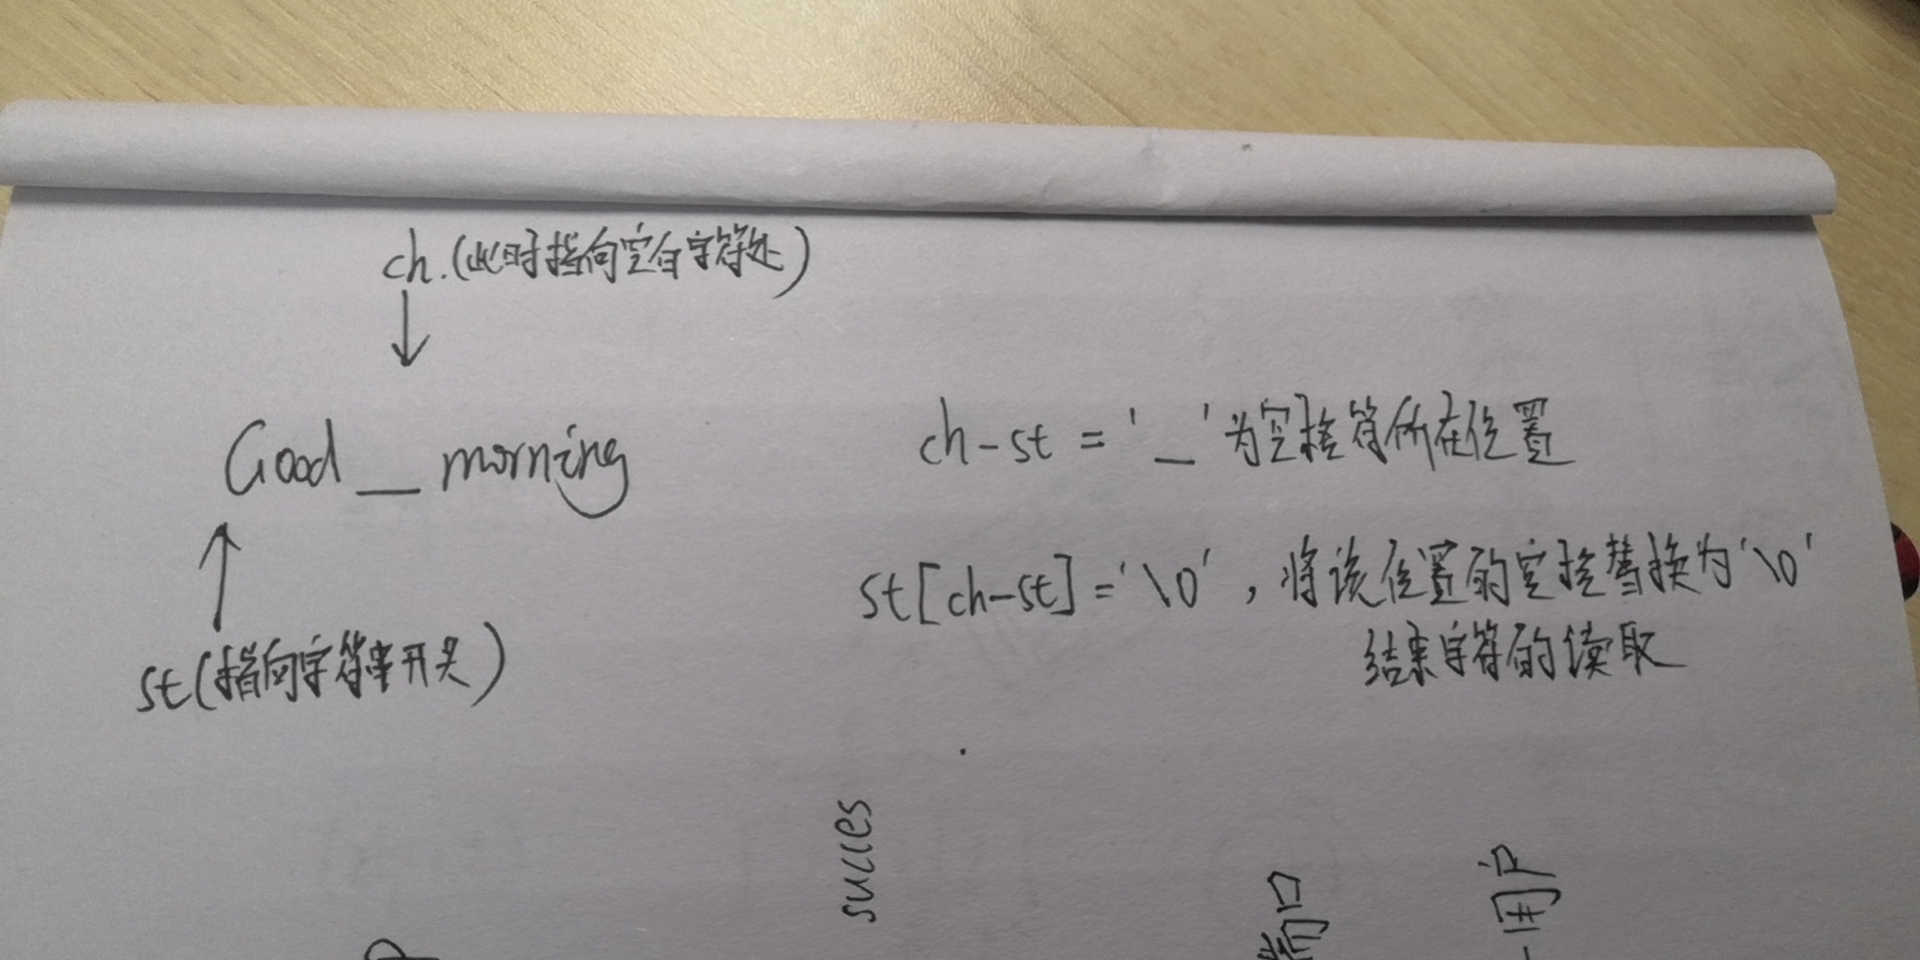 ch.(此时指向空白字符处)
Good _ morning
st(指向字符串开头)
ch-st = '_'为空格符所在位置
st[ch-st]='\0'，将该位置的空格替换为'\0'
结束字符的读取
succes
端口
用户